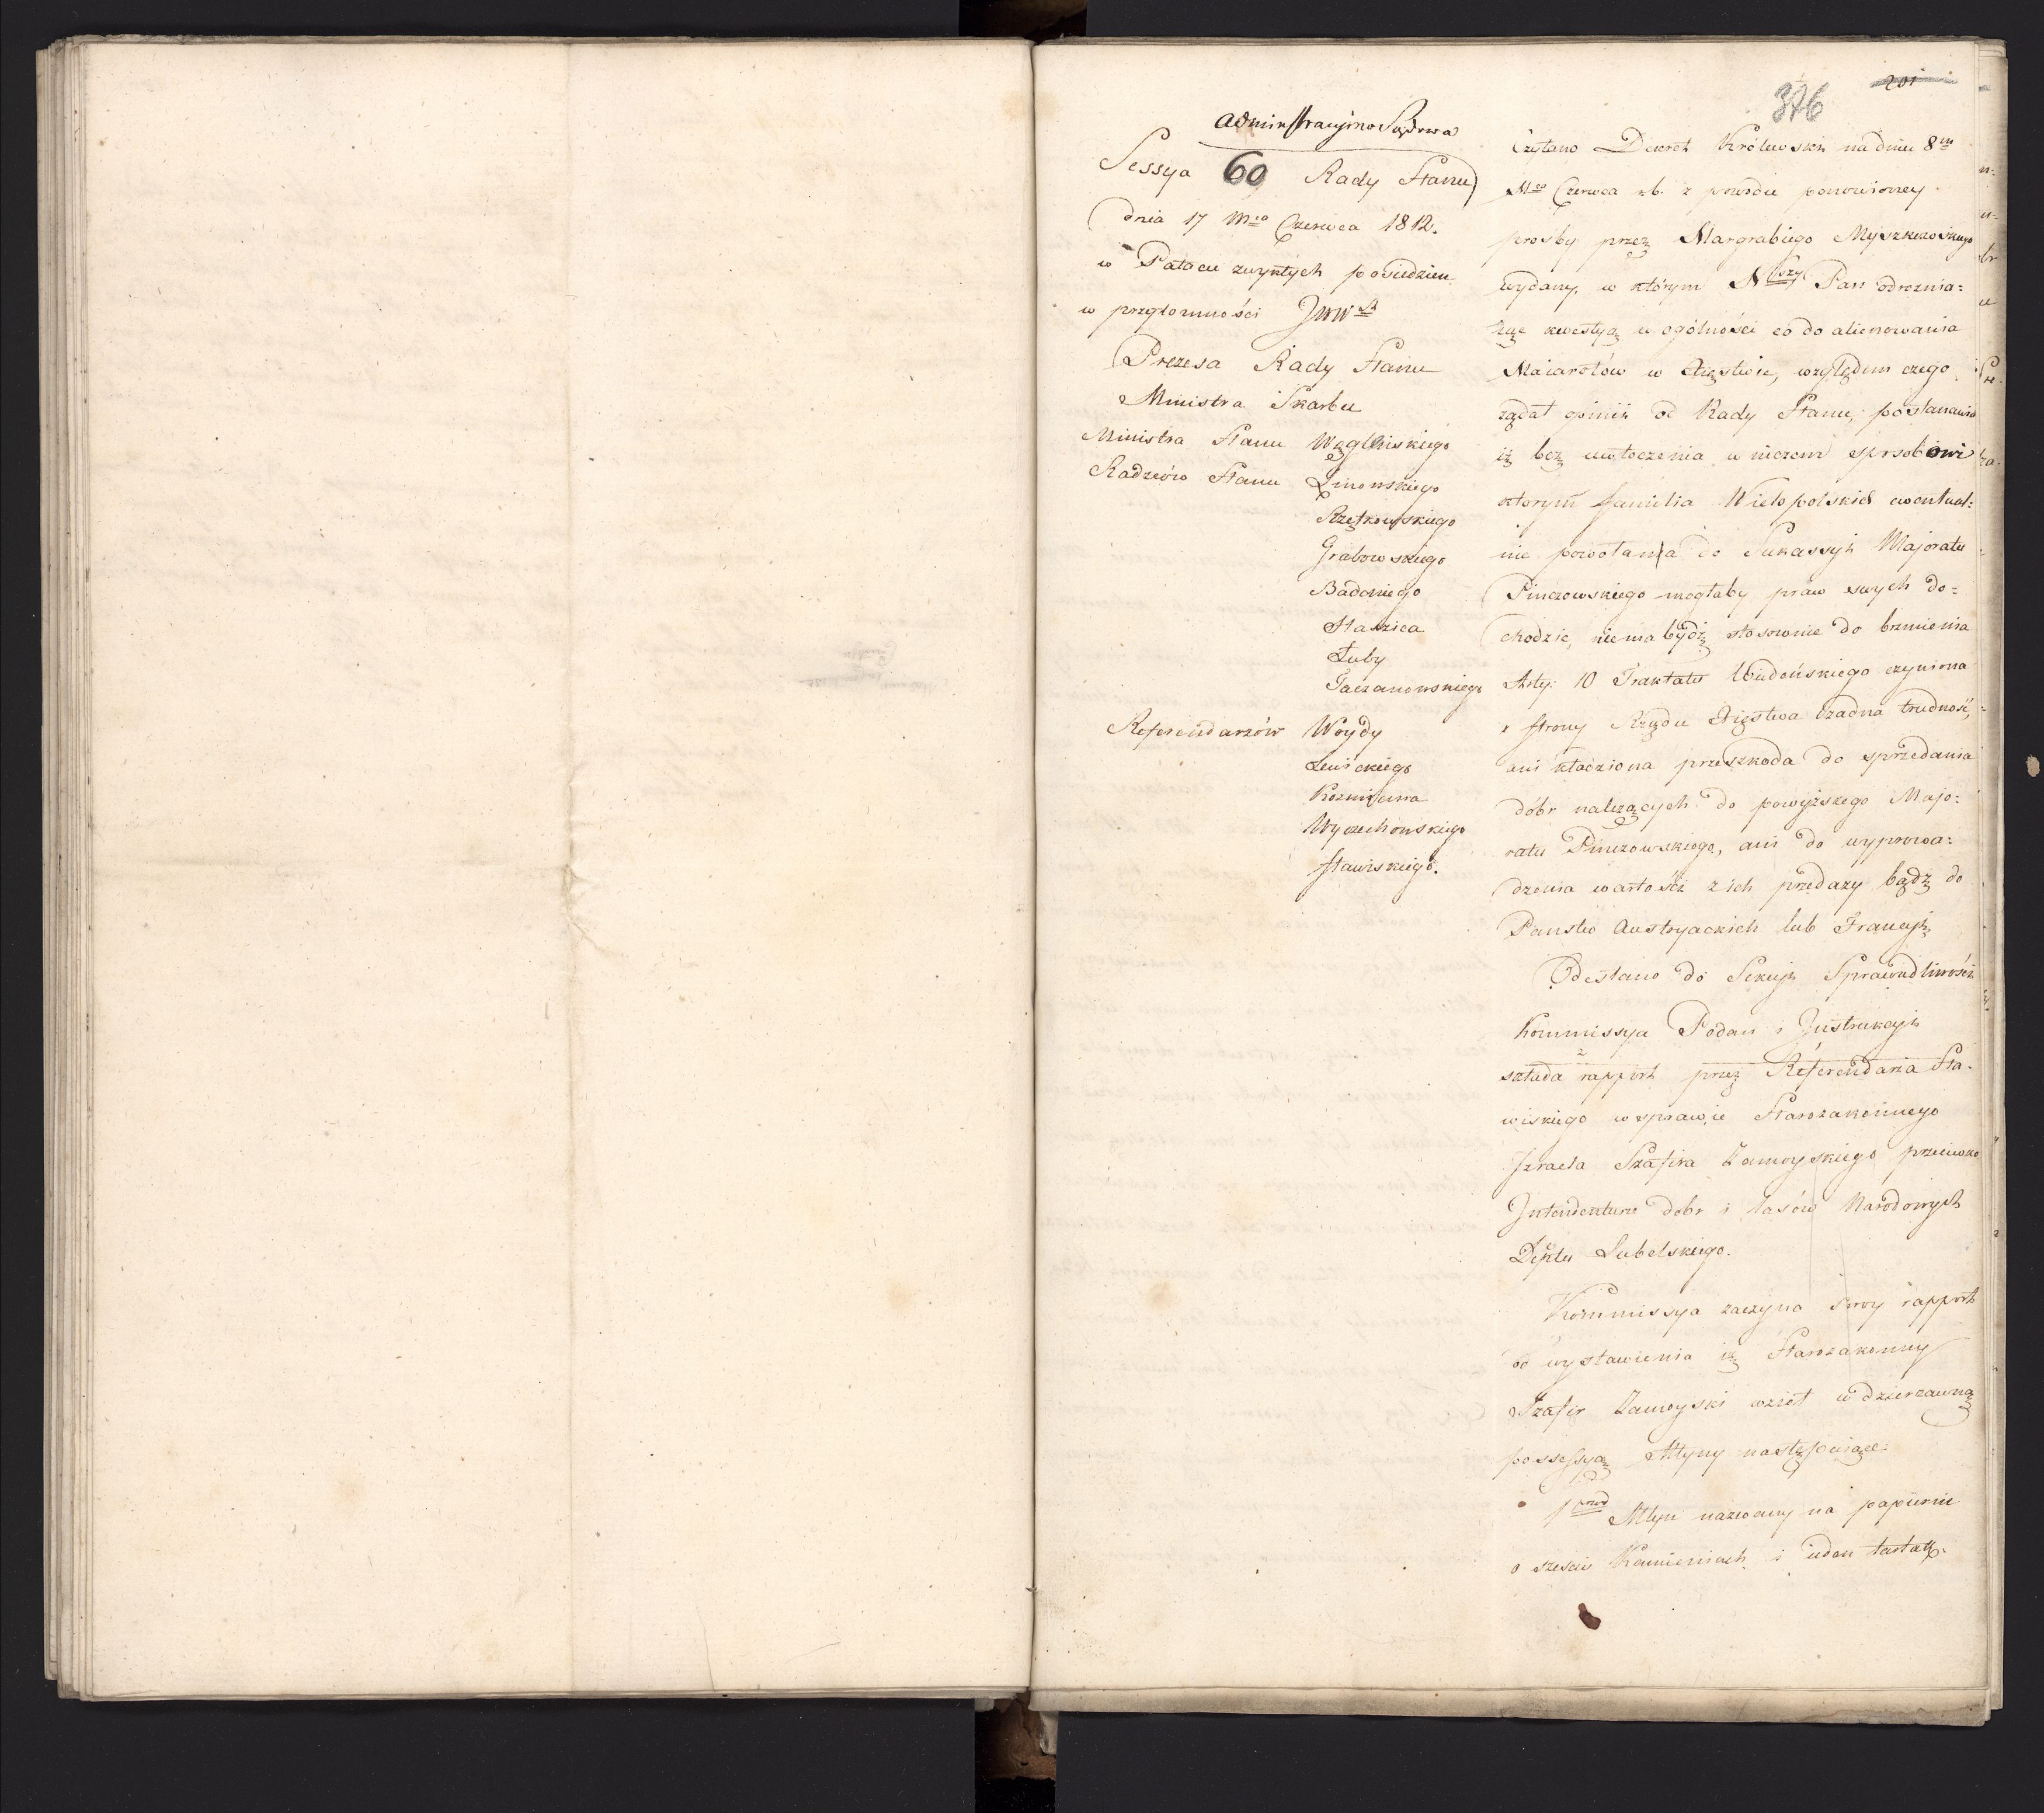 201
376
Administracyino Sądowa
Sessya 60 Rady Stanu
dnia 17 Mca Czerwca 1812.
w Pałacu zwykłych posiedzeń
w przytomności JWWch
Prezesa Rady Stanu
Ministra Skarbu
Ministra Stanu Węgleńskiego
Radzców Stanu Linowskiego
Rzętkowskiego
Grabowskiego
Badeniego
Staszica
Łuby
Taczanowskiego
Referendarzów Woydy
Lewickiego
Koźmiana
Wyczechowskiego
Stawiskiego.
Czytano Dekret Królewski na dniu 8m
Mca Czerwca r.b. z powodu ponowioney
prosby przez Margrabiego Myszkowskiego
wydany, w którym Nszy Pan odroznia=
iąc kwestyą w ogólności co do alienowania
Maioratów w Xięstwie, względem czego
ządał opinii od Rady Stanu, postanawia
iż bez uwłoczenia w niczem sposobowi
ktorym familia Wielopolskich ewentual=
nie powołana do Sukcessyi Majoratu
Pinczowskiego mogłaby praw swych do=
chodzic, niema bydź stosownie do brzmienia
Arty: 10 Traktatu Wiedeńskiego czyniona
z strony Rządu Xięstwa żadna trudność,
ani kładziona przeszkoda do sprzedania
dóbr należących do powyższego Majo=
ratu Pinczowskiego, ani do wyprowa=
dzenia wartości z ich przedaży bądź do
Panstw Austryackich lub Francyi.
Odesłano do Sekcyi Sprawiedliwości
Kommissya Podań i Instrukcyi
składa rapport przez Referendarza Sta-
wiskiego w sprawie Starozakonnego
Izraela Szafira Zamoyskiego przeciwko
Intendenturze dobr i lasów Narodowych
Deptu Lubelskiego.
Kommissya zaczyna swoy rapport
od wystawienia iż Starozakonny
Szafir Zamoyski wziół w dzierzawną
possessyą Młyny następuiące:
1mo Młyn nazwany na papierni
o sześciu Kamieniach i ieden tartak.